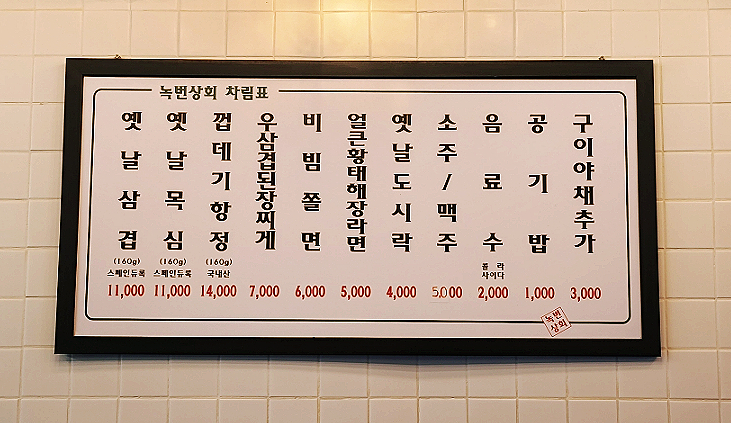 녹번상회 차림표
옛날삼겹
(160g)
스페인듀록
11,000
옛날목심
(160g)
스페인듀록
11,000
껍데기항정
(160g)
국내산
14,000
우삼겹된장찌게
7,000
비빔쫄면
6,000
얼큰황태해장라면
5,000
옛날도시락
4,000
소주/맥주
5,000
음료수
콜라
사이다
2,000
공기밥
1,000
구이야채추가
3,000
녹번
상회